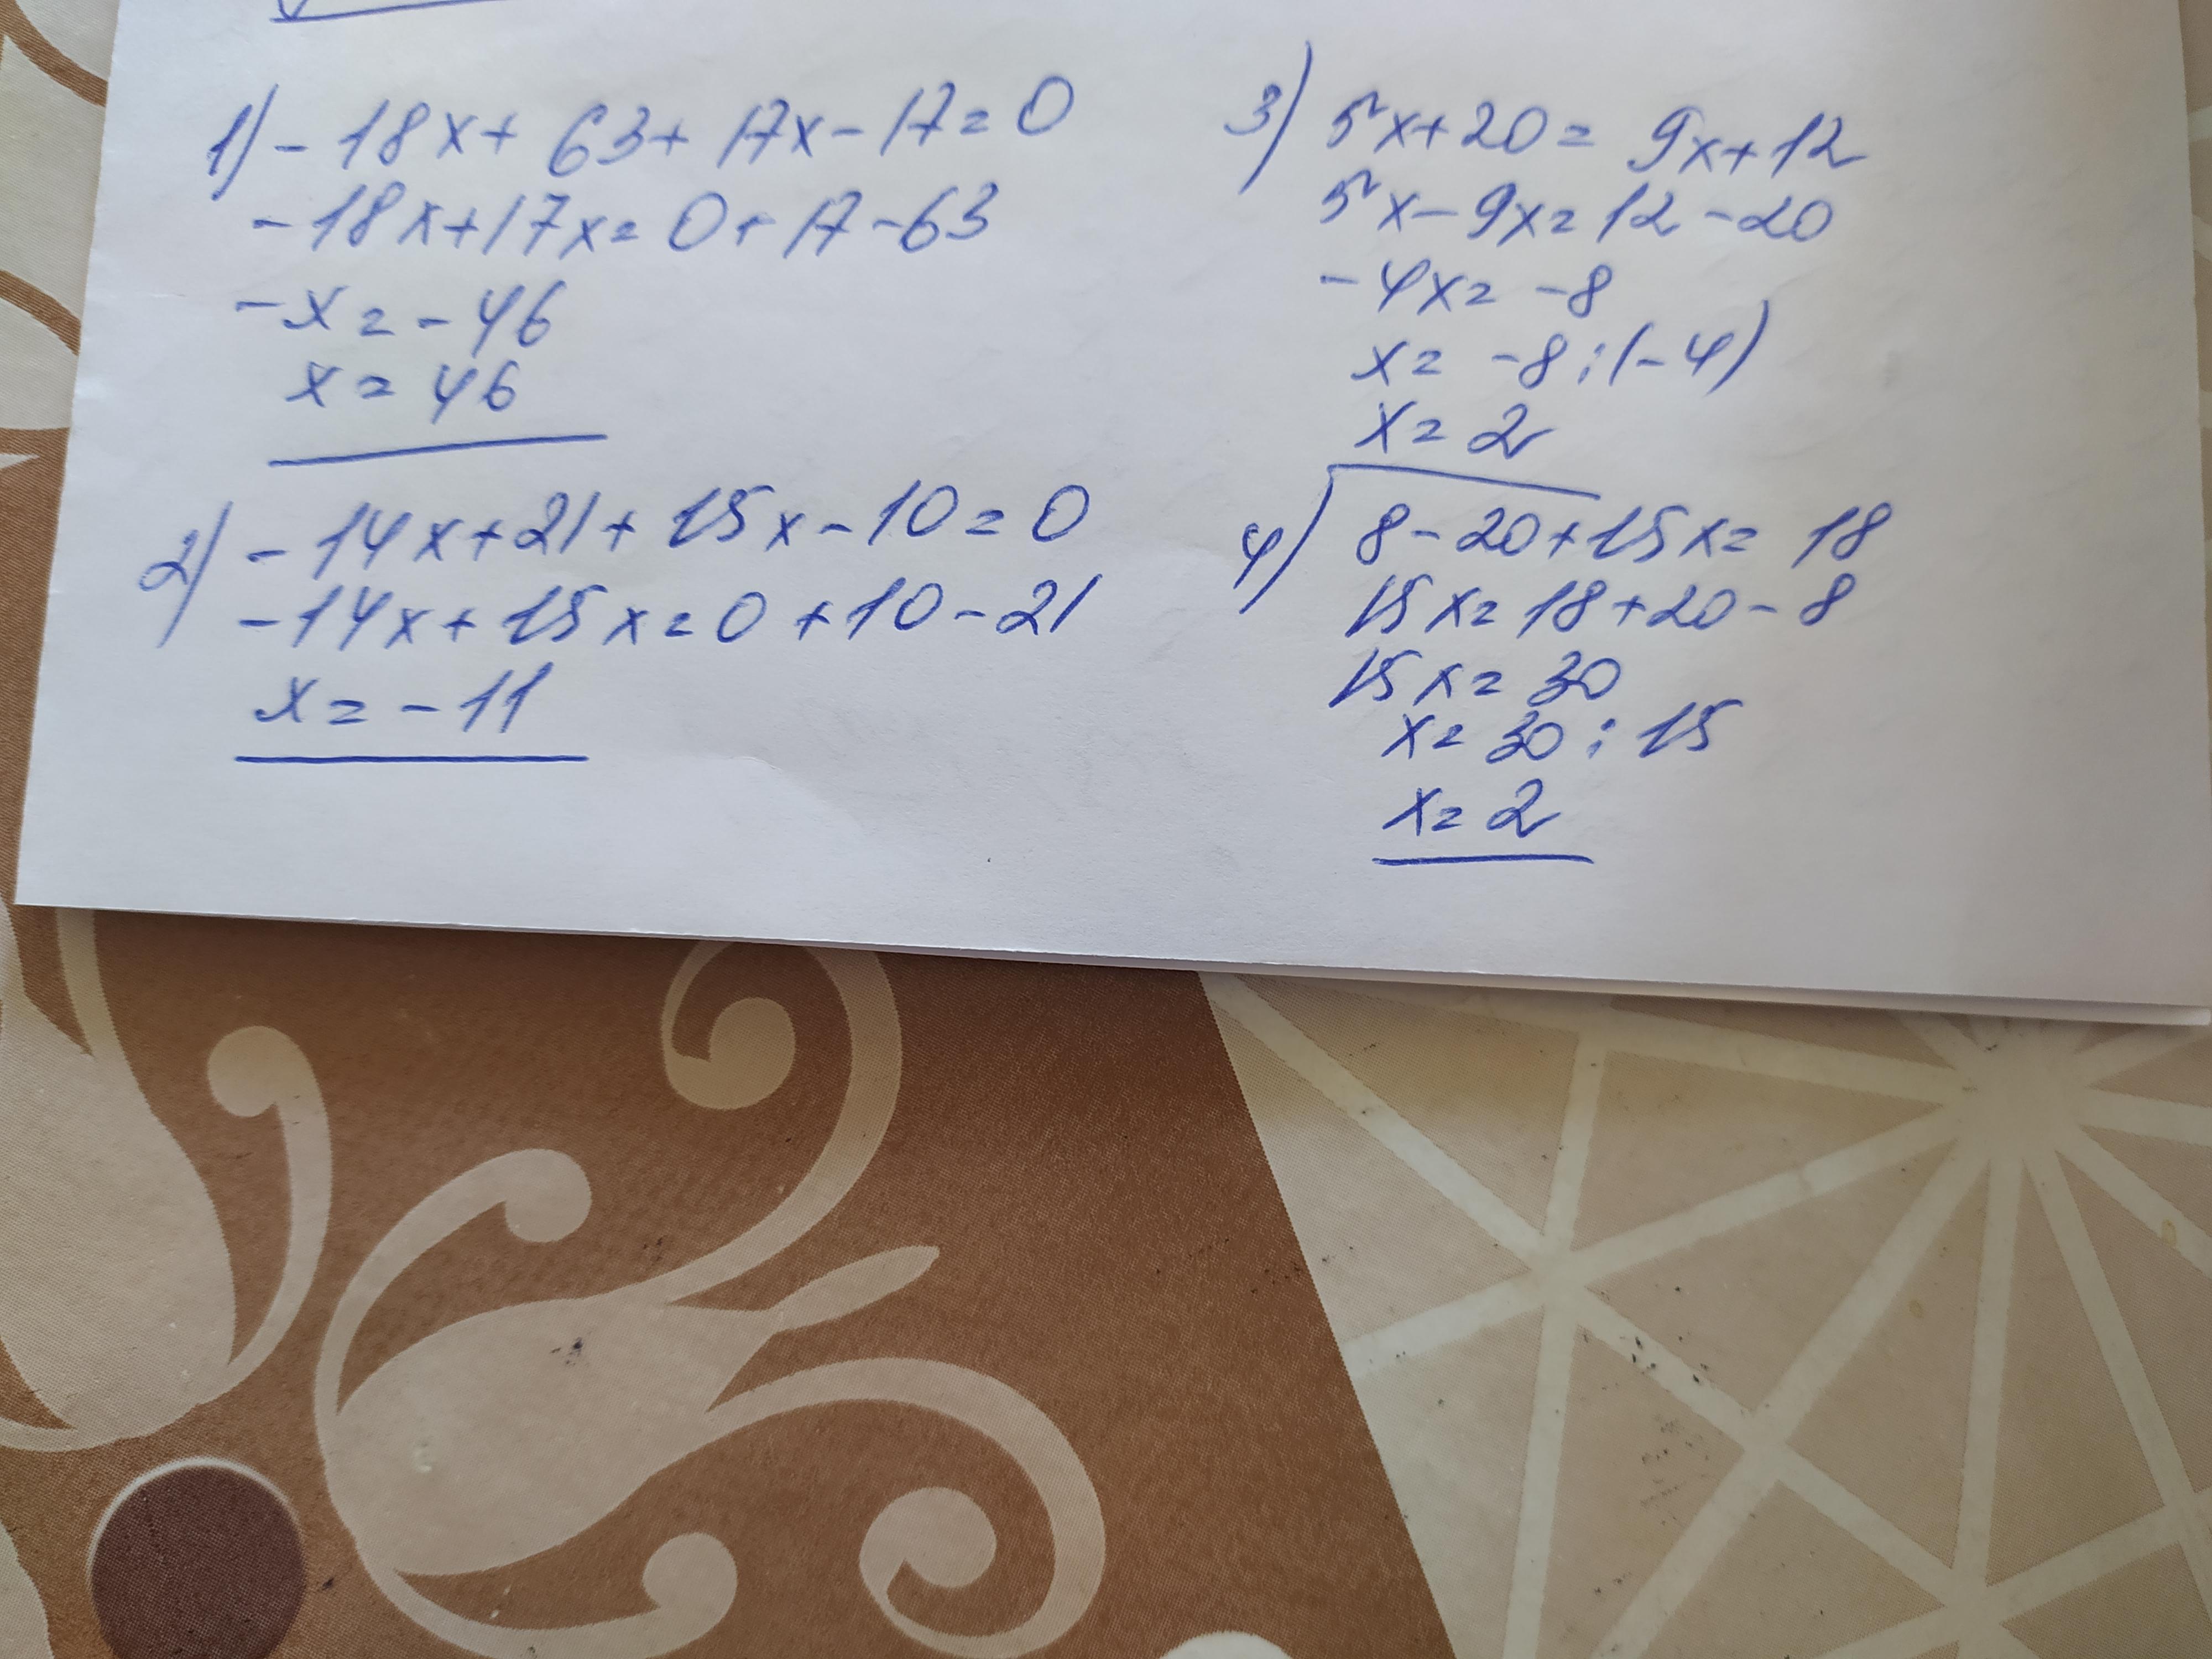 1) -18x+63+17x-17=0
-18x+17x=0+17-63
-x=-46
x=46
2) -14x+21+15x-10=0
-14x+15x=0+10-21
x=-11
3) 5x+20=9x+12
5x-9x=12-20
-4x=-8
x=-8:(-4)
x=2
4) 8-20+15x=18
15x=18+20-8
15x=30
x=30:15
x=2